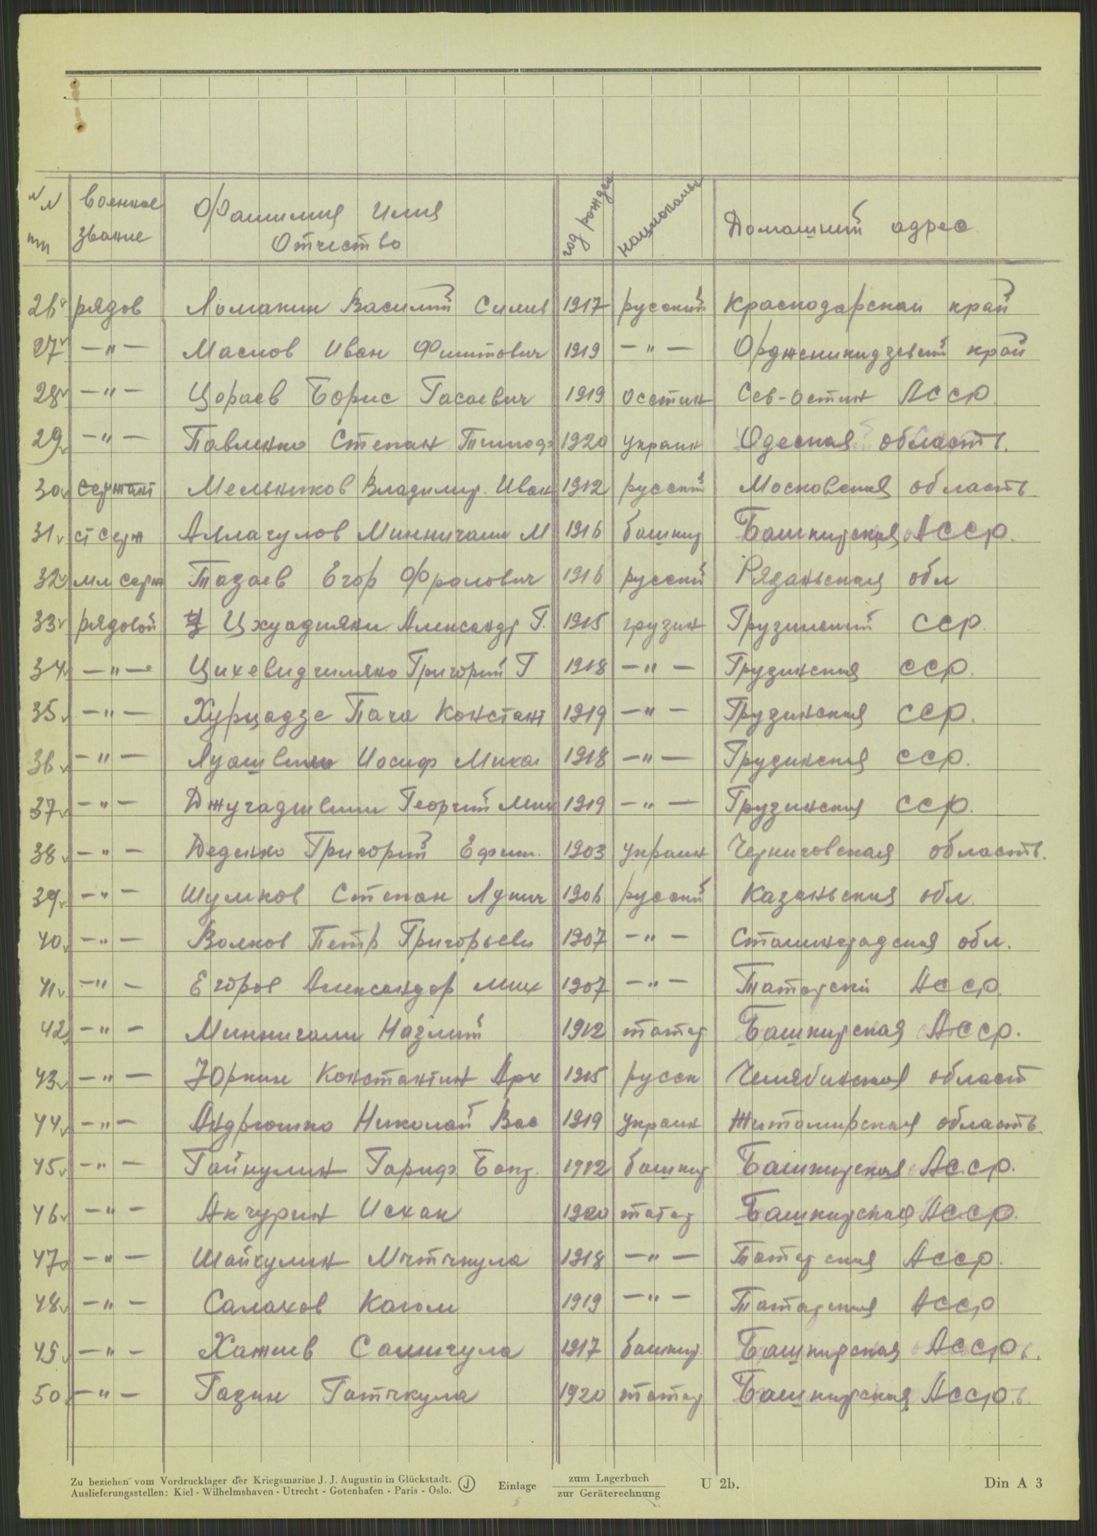 NN пп военное звание Фамилия Имя Отчество год рожден национальн Домашний адрес
26 рядов Ломакин Василий Силив 1917 русский Краснодарский край
27 —"— Маслов Иван Филиппович 1919 —"— Орджоникидзевский край
28 —"— Цораев Борис Гасаевич 1919 осетин Сев-остин АССР
29 —"— Павленко Степан Тимоф 1920 украин Одеская область.
30 сержант Мельников Владимир. Иван 1912 русский Московская область
31 ст серж Аллагулов Миннигали М 1916 башкир Башкирская АССР.
32 мл серж Тазаев Егор Фролович 1916 русский Рязаньская обл
33 рядовой Александр Г. 1915 грузин Грузинский ССР.
34 —"— Григорий Г 1918 —"— Грузинская ССР.
35 —"— Хурцадзе Пача Констант 1919 —"— Грузинская ССР.
36 —"— Иосиф Миха 1918 —"— Грузинская ССР.
37 —"— Джугадшвили Георгий Мих 1919 —"— Грузинская ССР.
38 —"— Деденко Григорий Ефим. 1903 украин Черниговская область.
39 —"— Шумков Степан Лукич 1906 русский Казаньская обл.
40 —"— Волков Петр Григорьеви 1907 —"— Сталинградская обл.
41 —"— Егоров Александр Мих 1907 —"— Татарский АССР
42 —"— Миннигали Назмий 1912 татар Башкирская АССР.
43 —"— Юркин Константин Арх 1915 русск Челябинская област
44 —"— Андрюшко Николай Вас 1919 украин Житомирская область
45 —"— Гайкулин Гариф 1912 башкир Башкирская АССР.
46 —"— Акчурин Исхак 1920 татар Башкирская АССР.
47 —"— Шайкулин 1918 —"— Татарская АССР.
48 —"— Салахов Кагом 1919 —"— Татарская АССР
49 —"— Хажиев Салигула 1917 башкир Башкирская АССР.
50 —"— Газин 1920 татар Башкирская АССР.
Zu beziehen vom Vordrucklager der Kriegsmarine J. J. Augustin in Glückstadt.
Auslieferungsstellen: Kiel - Wilhelmshaven - Utrecht - Gotenhafen - Paris - Oslo.
J
Einlage zum Lagerbuch
zur Geräterechnung
U 2b.
Din A 3